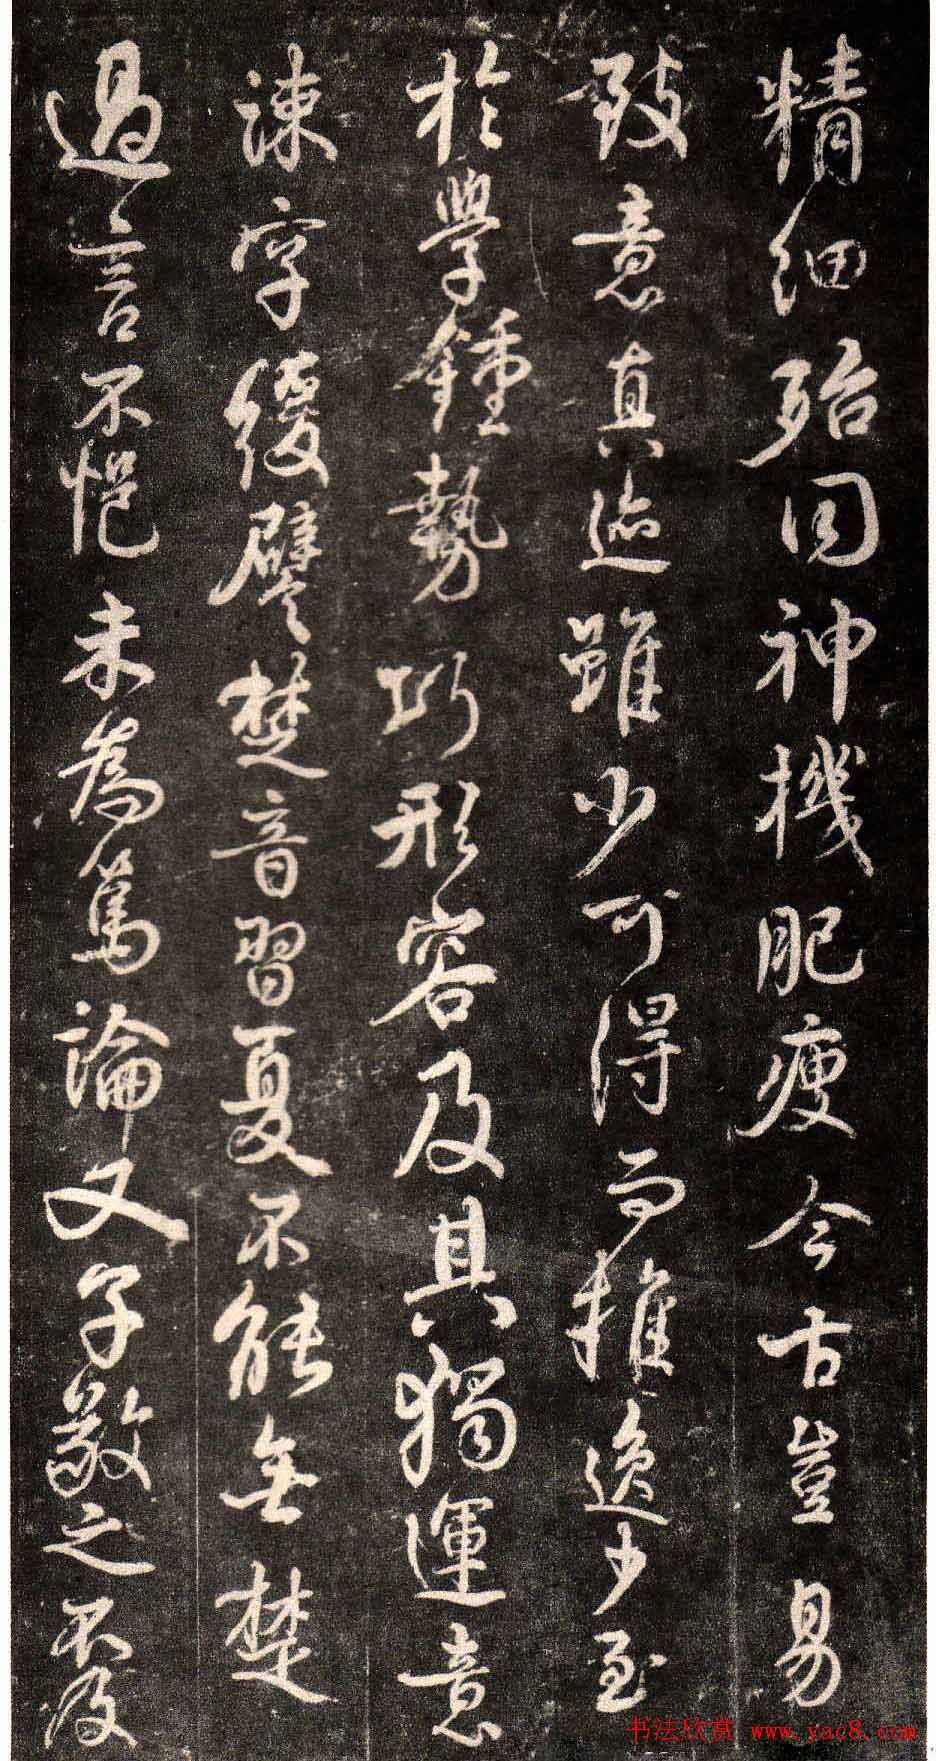 精細殆同神機肥瘦今古豈易
致意真迹雖少可得而推逸少至
於學鍾勢巧形容及其獨運意
疎字緩譬楚音習夏不能無楚
過言不悒未為篤論又子敬之不及
书法欣赏 www.yac8.com